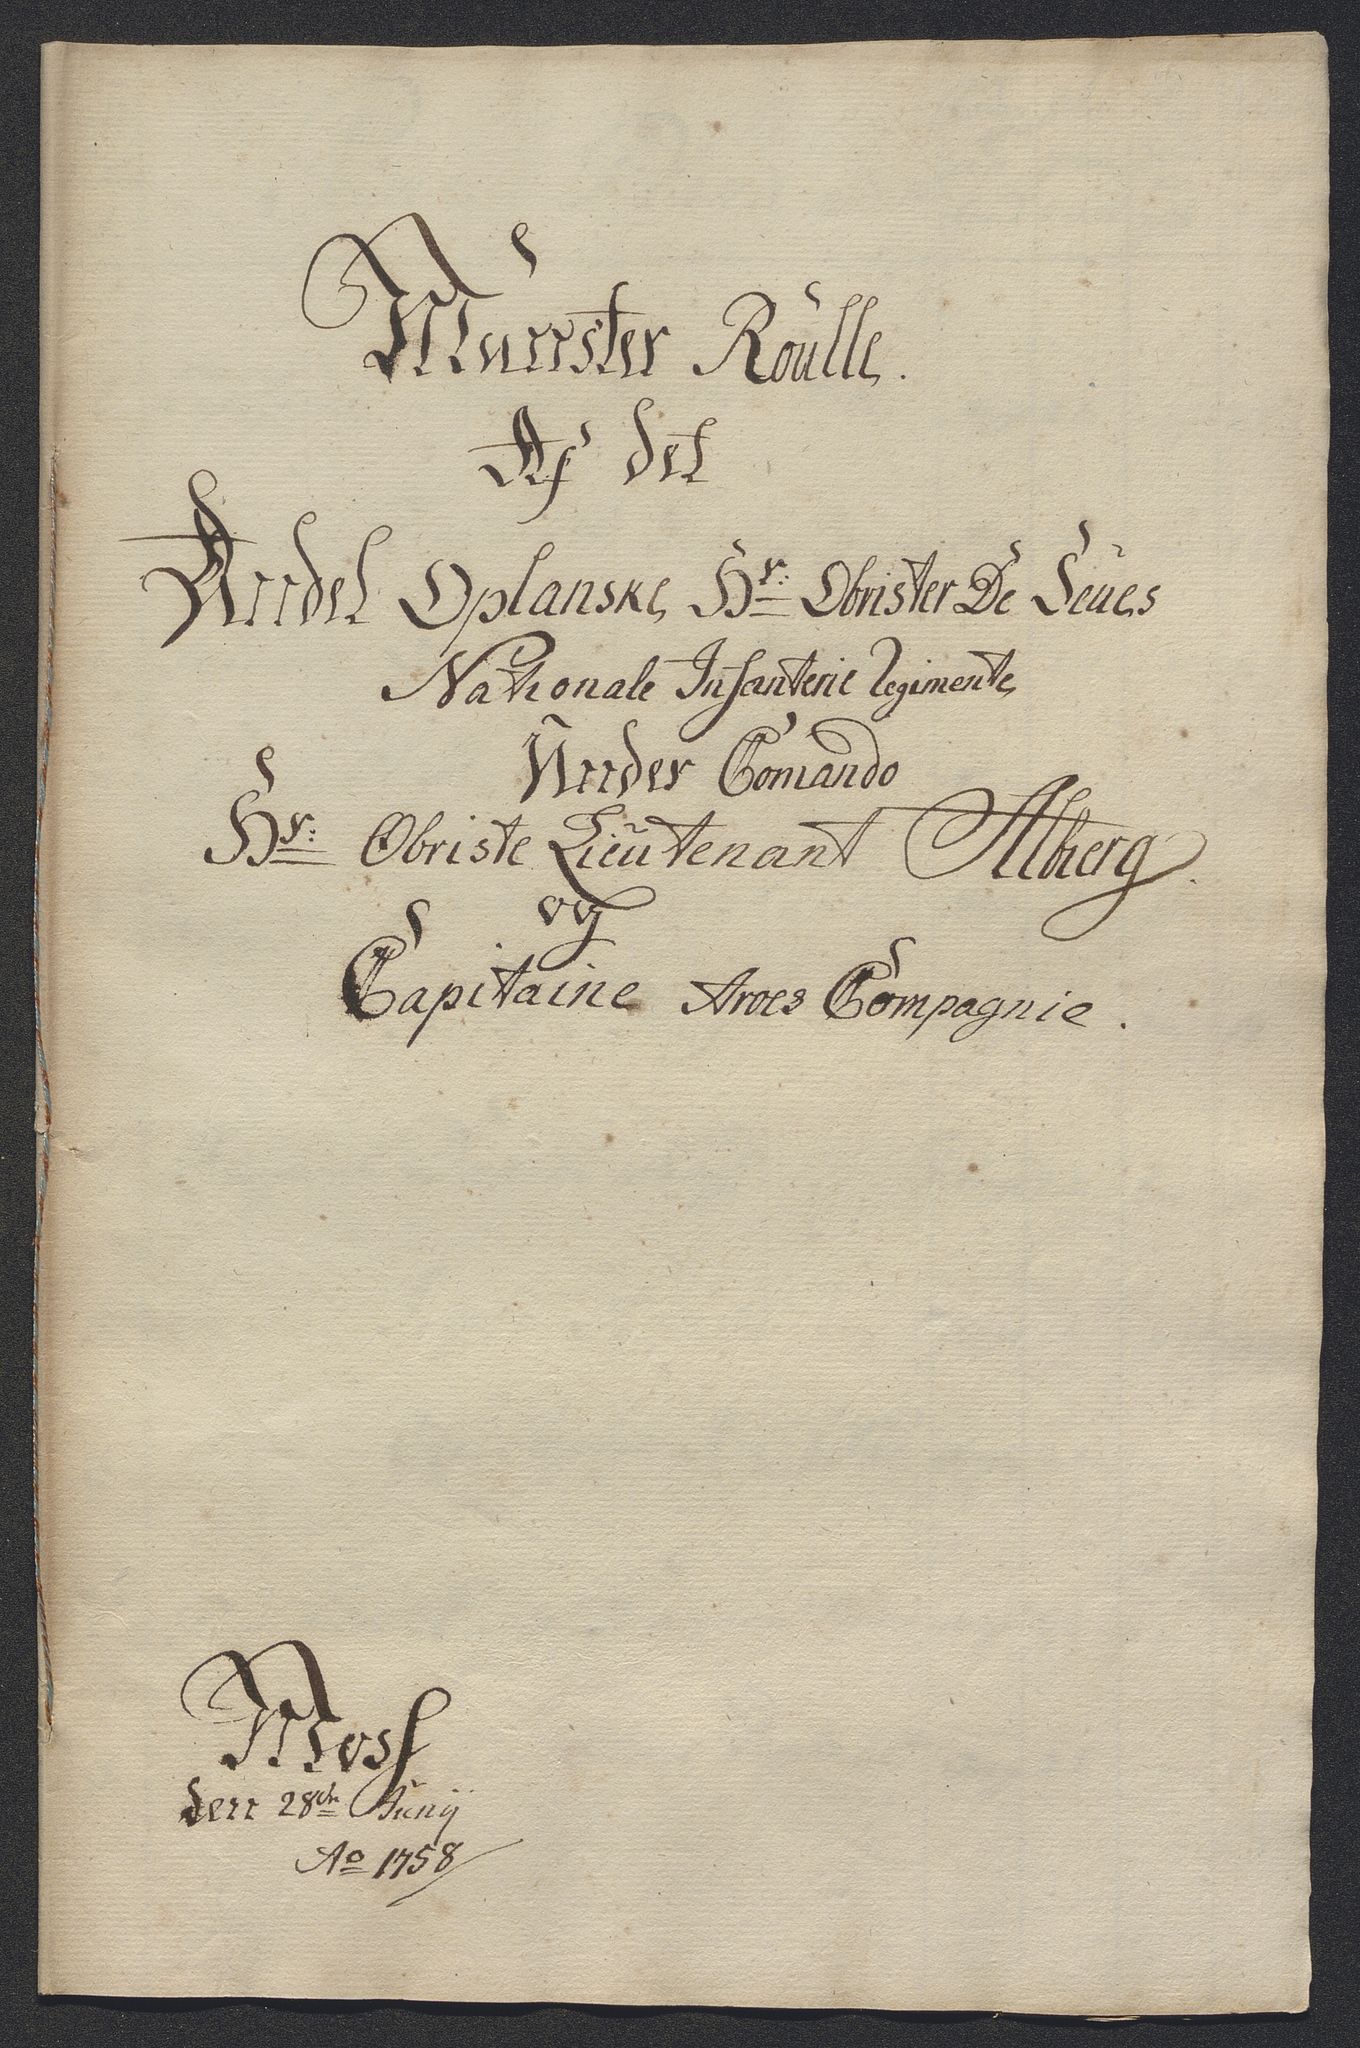 Munster Roulle.
Af det
Andet Oplanske Hr: Obrister De Seues
Nationale Infanterie Regimente
Under Comando
Hr: Obriste Lieutenant Alberg.
og
Capitaine Aroes Compagnie.
Moss
den 28de Junij
Ao 1758